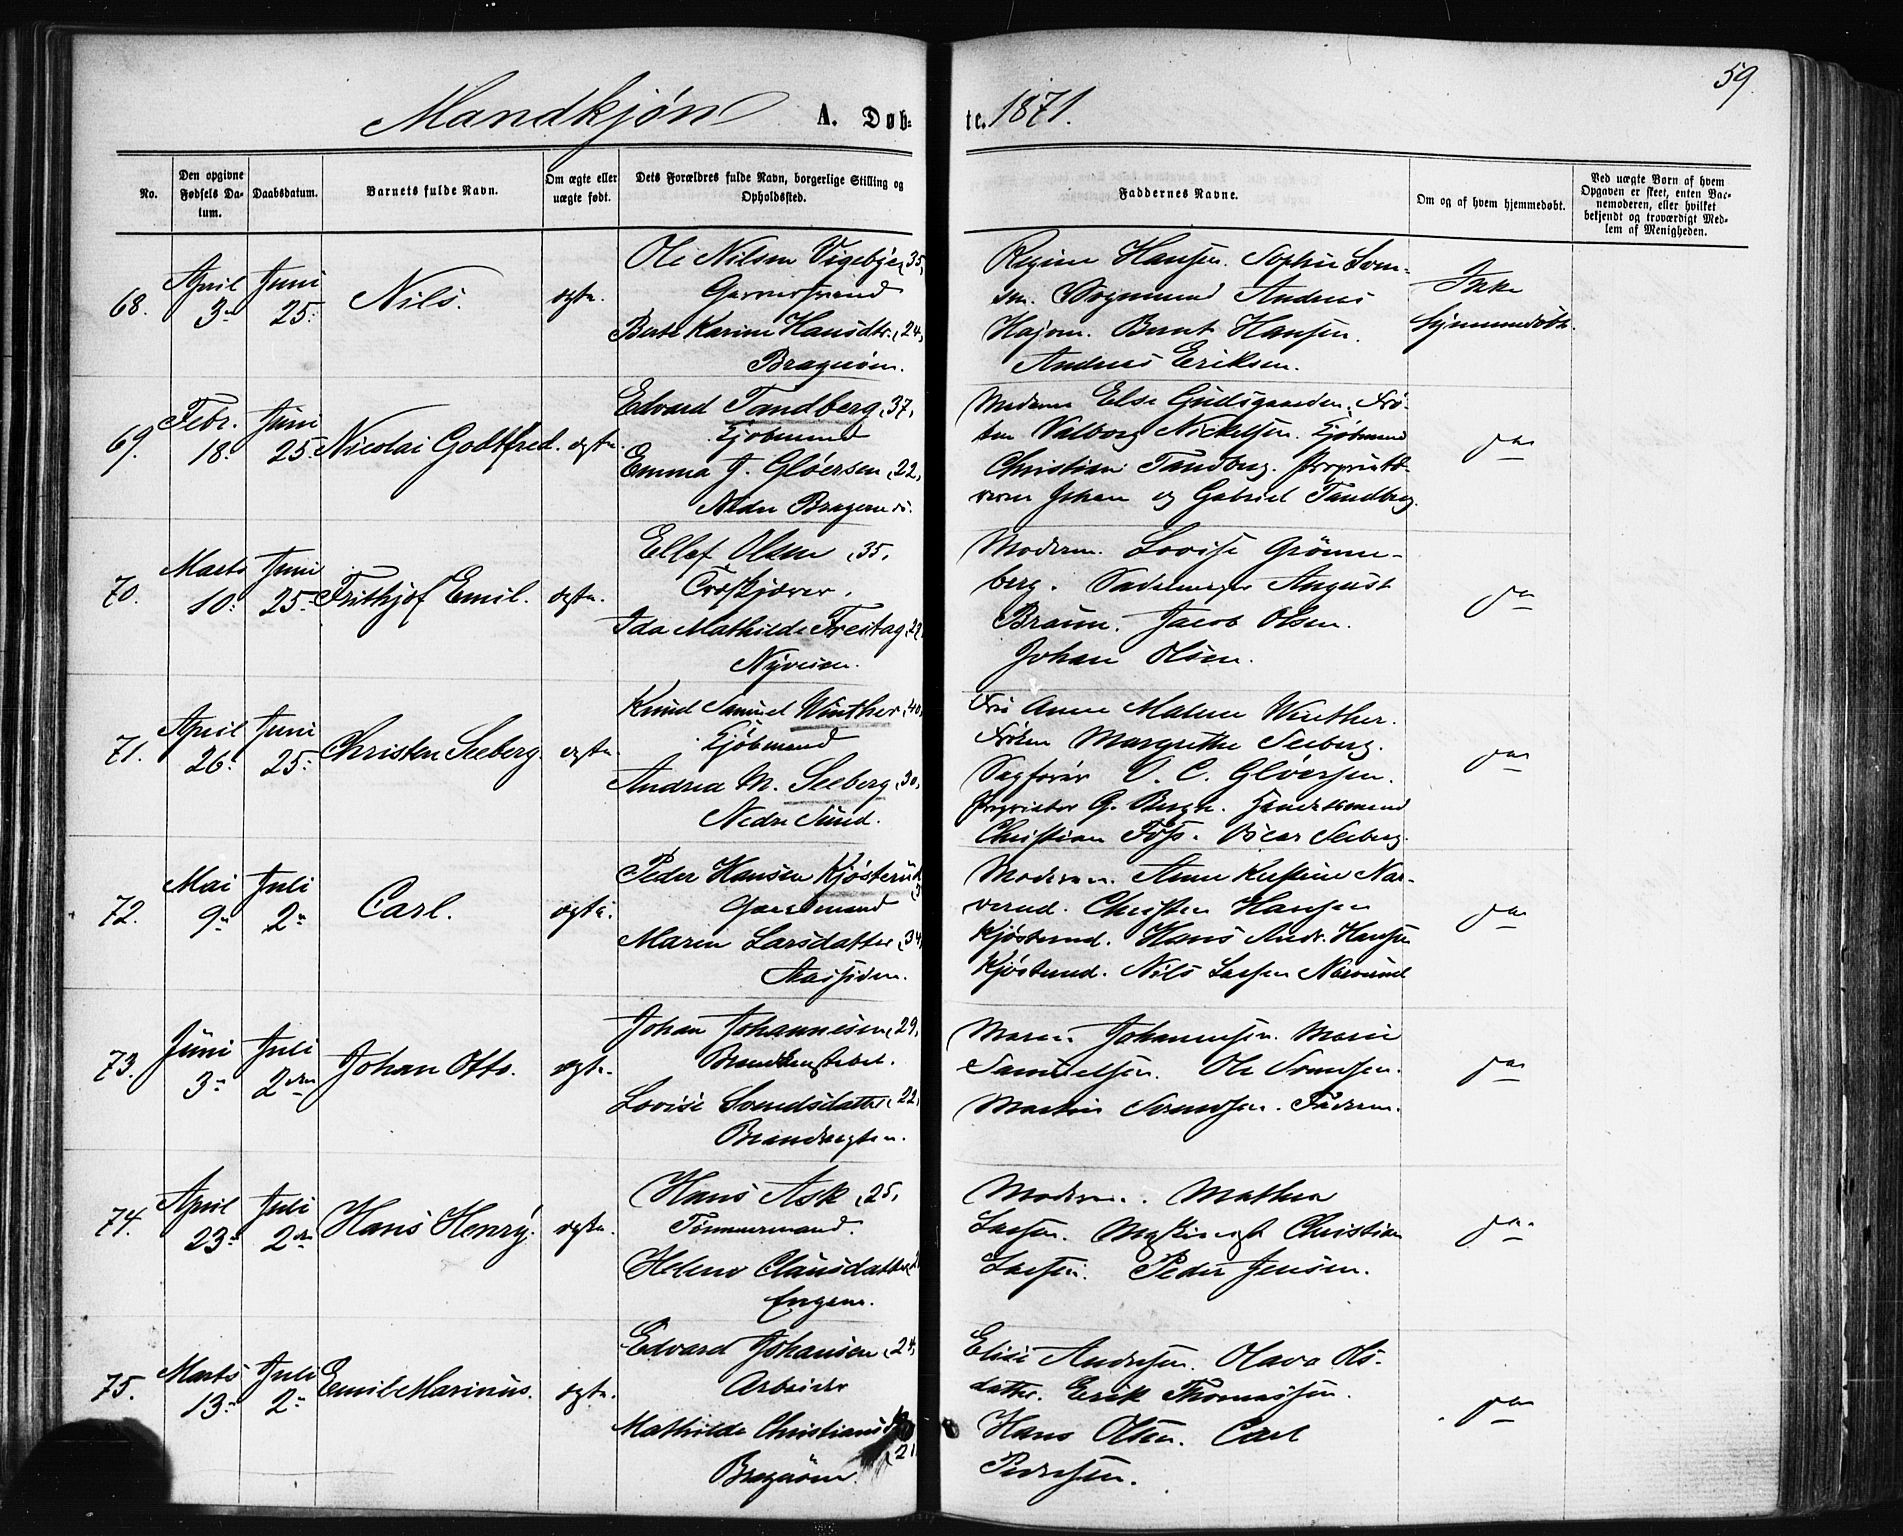 59.
Mandkjøn A. Døb- te. 1871.
No.
Den opgivne Fødsels Da- tum.
Daabsdatum.
Barnets fulde Navn.
Om ægte eller uægte født.
Dets Forældres fulde Navn, borgerlige Stilling og Opholdssted.
Faddernes Navne.
Om og af hvem hjemmedøbt.
Ved uægte Børn af hvem Opgaven er skeet, enten Bar- nemoderen, eller hvilket bekjendt og troværdigt Med- lem af Menigheden.
68. April 3 Juni 25. Nils. ægte.
Ole Nilsen Vigebye, 35,
Bert Karine Hansdtr., 24,
Bragerøen.
Regine Hansen. Sophie Svend-
sen. Andreas
Bernt Hansen.
Andreas Eriksen.
Ikke
hjemmedøbt.
69. Febr. 18. Juni 25. Nicolai Godtfred. ægte.
Edvard Tandberg, 37,
Kjøbmand
Emma J. Gløersen, 22,
Nedre Bragernes.
Madame Else Gudsgaarden. Frø-
ken Valborg Nickelsen. Kjøbmand
Christian Tandberg. Proprietæ-
rerne Johan og Gabriel Tandberg.
70. Marts 10. Juni 25. Frithjof Emil. ægte.
Ellef Olsen, 35,
Ida Mathilde Freitag,
Nyveien.
Moderen. Lovise Grønne-
berg. Sadelmager August
Braun. Jacob Olsen.
Johan Olsen.
71. April 26. Juni 25. Christen Seeberg. ægte.
Knud Samuel Winther, 40,
Kjøbmand
Andrea M. Seeberg, 30,
Nedre Sund.
Fru Anne Malene Winther.
Frøken Margrethe Seeberg.
Sagfører O. C. Gløersen.
Proprietær G. Bergh. Handelsmand
Christian Foss. Oscar Seeberg.
72. Mai 9 Juli 2 Carl. ægte.
Peder Hansen Kjøsterud
Gaardmand
Maren Larsdatter, 34
Aassiden.
Moderen. Anne Kirstine Nar-
verud. Christen Hansen
Kjøsterud. Hans Andr. Hansen
Kjøsterud. Nils Larsen Narverud
73. Juni 3 Juli 2den Johan Otto. ægte.
Johan Johannesen, 29,
Brandkonstabel.
Lovise Svendsdatter, 22,
Brandvagten.
Maren Johannesen. Marie
Samuelsen. Ole Svendsen.
Martin Svendsen. Faderen.
74. April 23 Juli 2den Hans Henry. ægte.
Hans Ask, 25,
Tømmermand.
Helene Clausdatter,
Engene.
Moderen. Mathea
Larsen. Christian
Larsen. Peder Jensen.
75. Marts 13 Juli 2 Emil Marinus. ægte.
Edvard Johansen, 24,
Arbeider
Mathilde
21
Bragerøen.
Elise Andersen. Olava Ols-
datter. Erik Thomassen.
Hans Olsen. Carl
Pedersen.